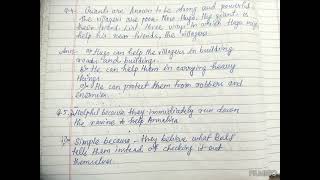 Q.4. Giants are known to be strong and powerful
the villagers are poor. Now Hugo, the giant is
their friend. List three ways in which Hugo may
help his new friends, the villagers.
Ans:- a) Hugo can help the villagers in building
roads and buildings.
b) He can help them in carrying heavy
things.
c) He can protect them from robbers and
enemies.
Q.5. Helpful because they immidiately run down
the ravine to help Annabita
Simple because - they beleive what Bald
tells them instead of checking it out
themselves.